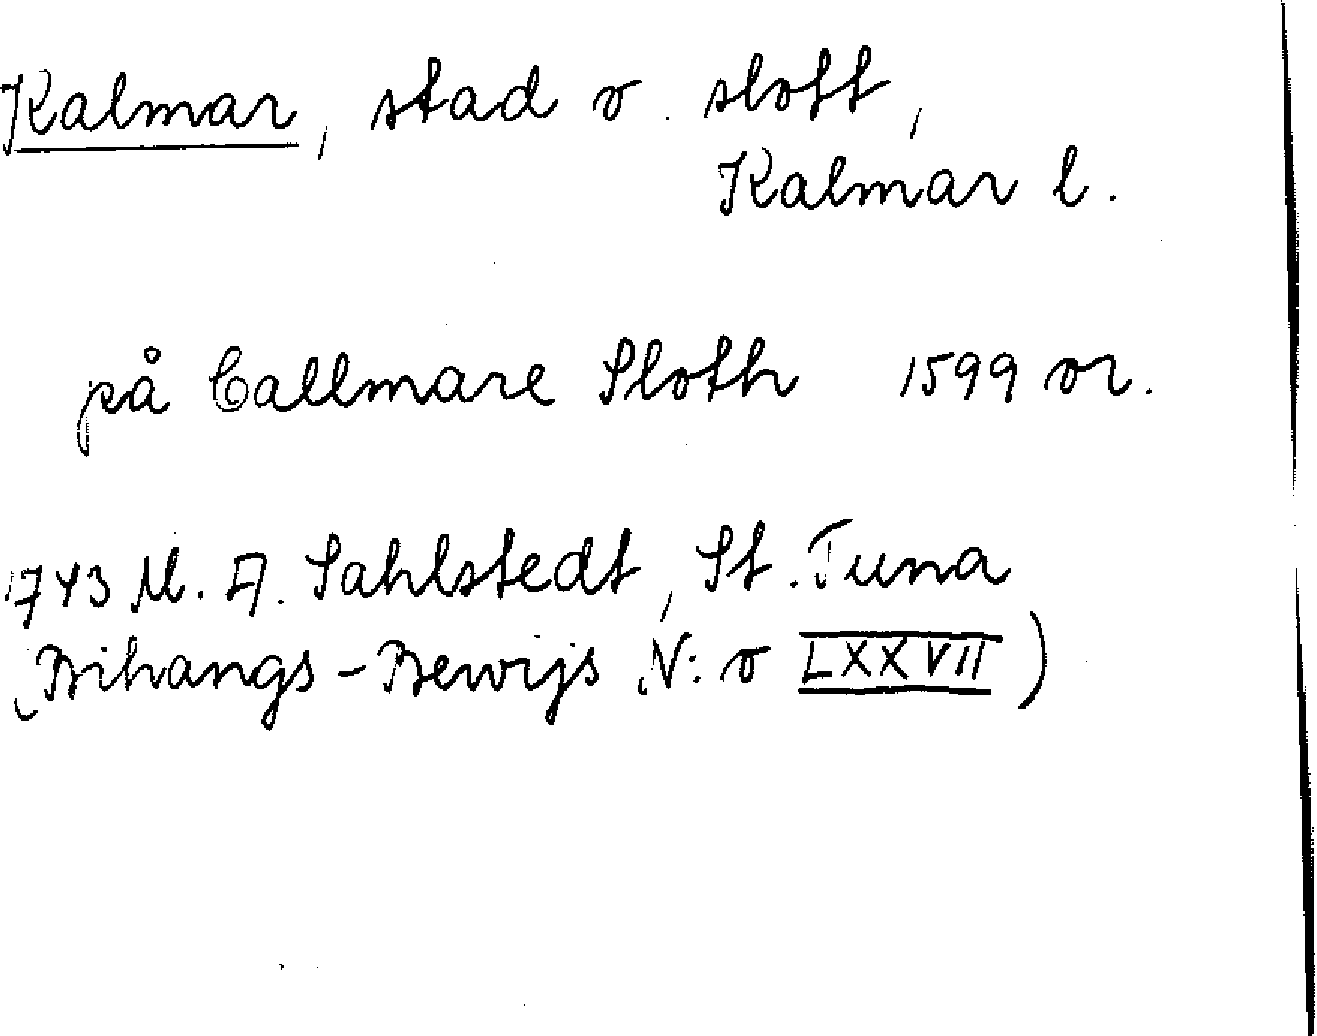 Kalmar, stad o. slott,
Kalmar l.
på Callmare Sloth 1599 or.
1743 M. A. Sahlstedt, St. Tuna
(Bihangs-Bewijs N:o LXXVII)